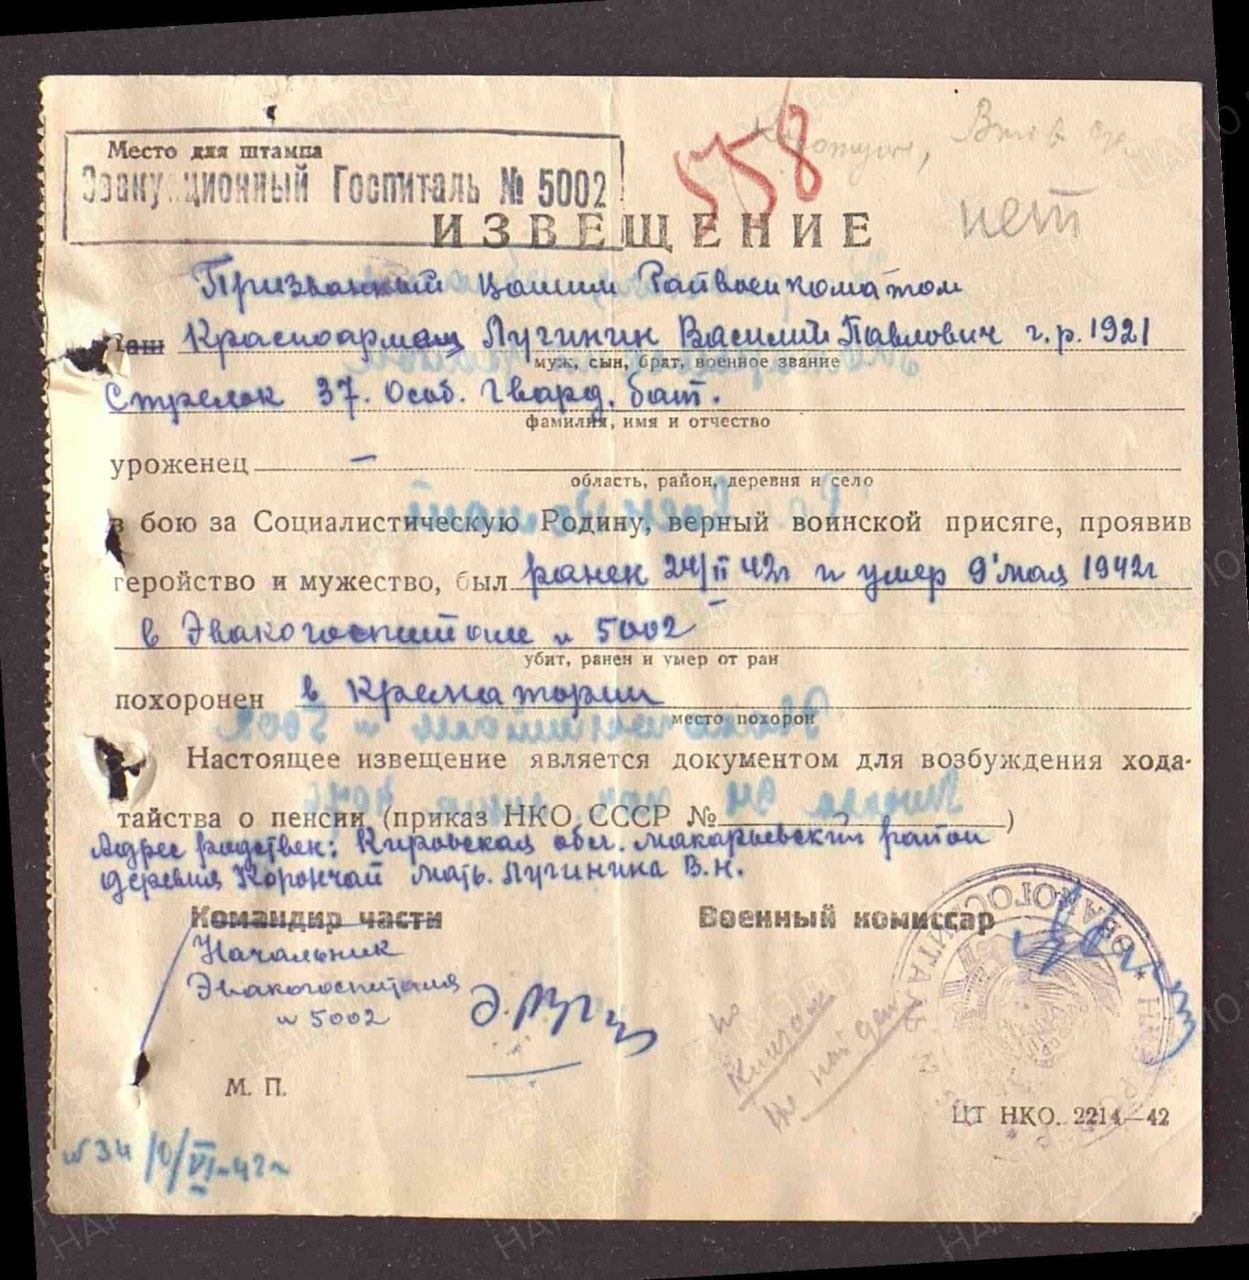 558
Место для штампа
Эвакуационный Госпиталь № 5002
ИЗВЕЩЕНИЕ
нет
Призванный Райвоенкоматом
Ваш Красноармеец Лугинин Василий Павлович г.р. 1921
муж, сын, брат, военное звание
Стрелок 37. Особ. Гвард. бат.
фамилия, имя и отчество
уроженец —
область, район, деревня и село
в бою за Социалистическую Родину, верный воинской присяге, проявив
геройство и мужество, был ранен 24/II 42г и умер 9 мая 1942г
в Эвакогоспитале № 5002
убит, ранен и умер от ран
похоронен в Крематории
место похорон
Настоящее извещение является документом для возбуждения хода-
тайства о пенсии (приказ НКО СССР № )
Адрес родствен: Кировская обл. Макарьевский район
деревня Корончай мать. Лугинина В.Н.
Командир части
Военный комиссар
Начальник
Эвакогоспиталя
№ 5002
по
книгам
не найден
М. П.
ЦТ НКО. 2214—42
№ 34 10/VI-42г